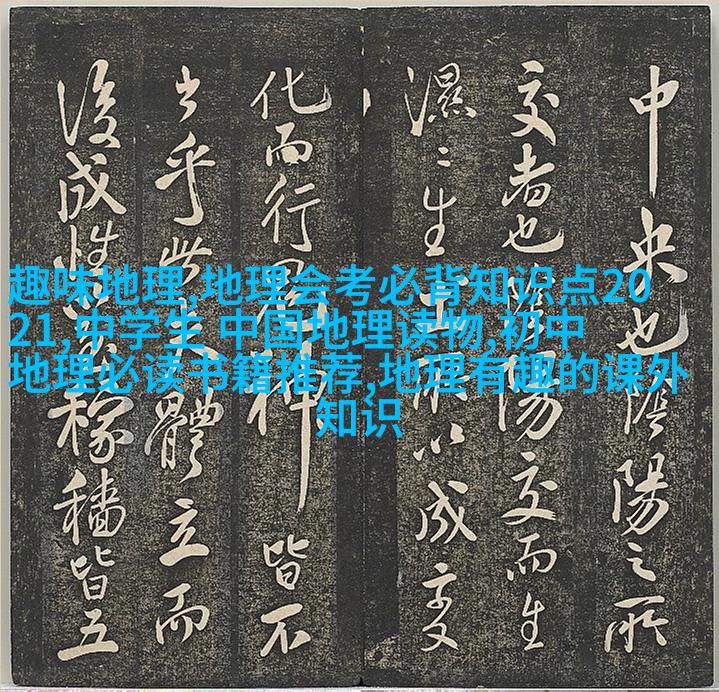 趣味地理,地理会考必背知识点20
21,中学生 中国地理读物,初中
地理必读书籍推荐,地理有趣的课外
知识
中央也陰陽之所
交者也陽交而生
濕〻生土所以成變
化而行神皆不
乎此體立而
後成性稼穡皆五